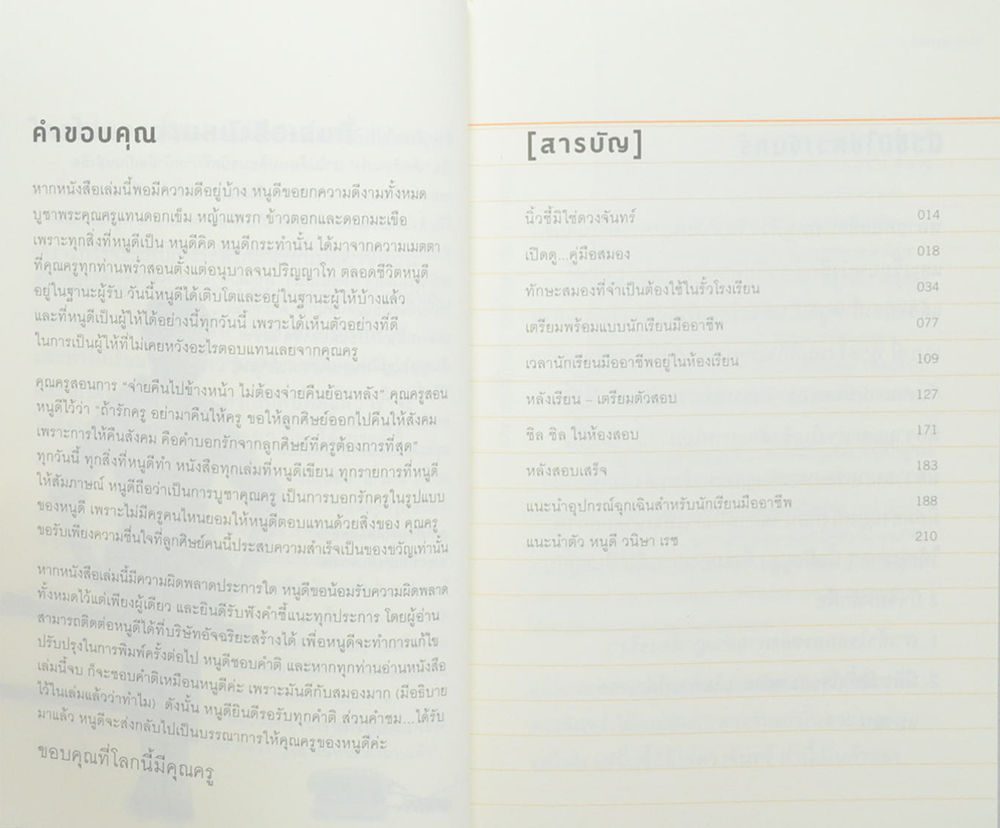 คำขอบคุณ
หากหนังสือเล่มนี้พอมีความดีอยู่บ้าง หนูดีขอยกความดีงามทั้งหมด
บูชาพระคุณครูแทนดอกเข็ม หญ้าแพรก ข้าวตอกและดอกมะเขือ
เพราะทุกสิ่งที่หนูดีเป็น หนูดีคิด หนูดีกระทำนั้น ได้มาจากความเมตตา
ที่คุณครูทุกท่านพร่ำสอนตั้งแต่อนุบาลจนปริญญาโท ตลอดชีวิตหนูดี
อยู่ในฐานะผู้รับ วันนี้หนูดีได้เติบโตและอยู่ในฐานะผู้ให้บ้างแล้ว
และที่หนูดีเป็นผู้ให้ได้อย่างนี้ทุกวันนี้ เพราะได้เห็นตัวอย่างที่ดี
ในการเป็นผู้ให้ที่ไม่เคยหวังอะไรตอบแทนเลยจากคุณครู
คุณครูสอนการ "จ่ายคืนไปข้างหน้า ไม่ต้องจ่ายคืนย้อนหลัง" คุณครูสอน
หนูดีไว้ว่า "ถ้ารักครู อย่ามาคืนให้ครู ขอให้ลูกศิษย์ออกไปคืนให้สังคม
เพราะการให้คืนสังคม คือคำบอกรักจากลูกศิษย์ที่ครูต้องการที่สุด"
ทุกวันนี้ ทุกสิ่งที่หนูดีทำ หนังสือทุกเล่มที่หนูดีเขียน ทุกรายการที่หนูดี
ให้สัมภาษณ์ หนูดีถือว่าเป็นการบูชาคุณครู เป็นการบอกรักครูในรูปแบบ
ของหนูดี เพราะไม่มีครูคนไหนยอมให้หนูดีตอบแทนด้วยสิ่งของ คุณครู
ขอรับเพียงความชื่นใจที่ลูกศิษย์คนนี้ประสบความสำเร็จเป็นของขวัญเท่านั้น
หากหนังสือเล่มนี้มีความผิดพลาดประการใด หนูดีขอน้อมรับความผิดพลาด
ทั้งหมดไว้แต่เพียงผู้เดียว และยินดีรับฟังคำชี้แนะทุกประการ โดยผู้อ่าน
สามารถติดต่อหนูดีได้ที่บริษัทอัจฉริยะสร้างได้ เพื่อหนูดีจะทำการแก้ไข
ปรับปรุงในการพิมพ์ครั้งต่อไป หนูดีชอบคำติ และหากทุกท่านอ่านหนังสือ
เล่มนี้จบ ก็จะชอบคำติเหมือนหนูดีค่ะ เพราะมันดีกับสมองมาก (มีอธิบาย
ไว้ในเล่มแล้วว่าทำไม) ดังนั้น หนูดียินดีรอรับทุกคำติ ส่วนคำชม...ได้รับ
มาแล้ว หนูดีจะส่งกลับไปเป็นบรรณาการให้คุณครูของหนูดีค่ะ
ขอบคุณที่โลกนี้มีคุณครู
[สารบัญ]
นิ้วชี้มิใช่ดวงจันทร์ 014
เปิดดู...คู่มือสมอง 018
ทักษะสมองที่จำเป็นต้องใช้ในรั้วโรงเรียน 034
เตรียมพร้อมแบบนักเรียนมืออาชีพ 077
เวลานักเรียนมืออาชีพอยู่ในห้องเรียน 109
หลังเรียน – เตรียมตัวสอบ 127
ชิล ชิล ในห้องสอบ 171
หลังสอบเสร็จ 183
แนะนำอุปกรณ์ฉุกเฉินสำหรับนักเรียนมืออาชีพ 188
แนะนำตัว หนูดี วนิษา เรซ 210